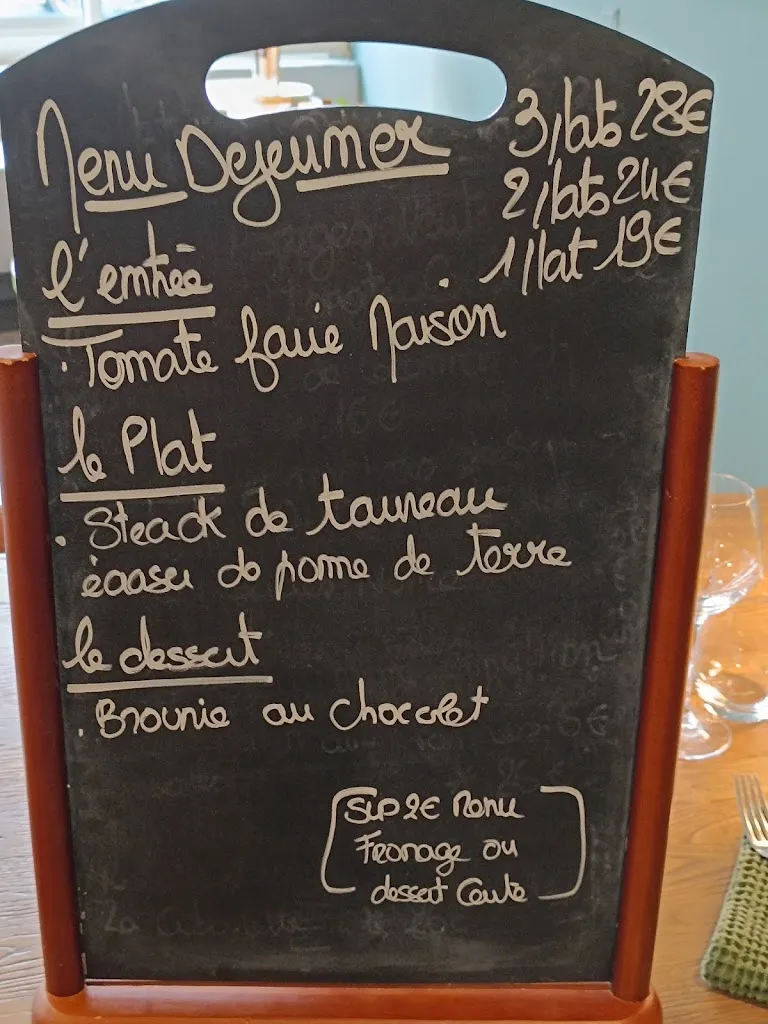 Menu Dejeuner
3 plats 28€
2 plats 24€
1 plat 19€
l'entrée
. Tomate farcie Maison
le Plat
. Steack de taureau
écaser de pome de terre
le dessert
. Brounie au chocolat
Sup 2€ Menu
Fromage ou
dessert Carte